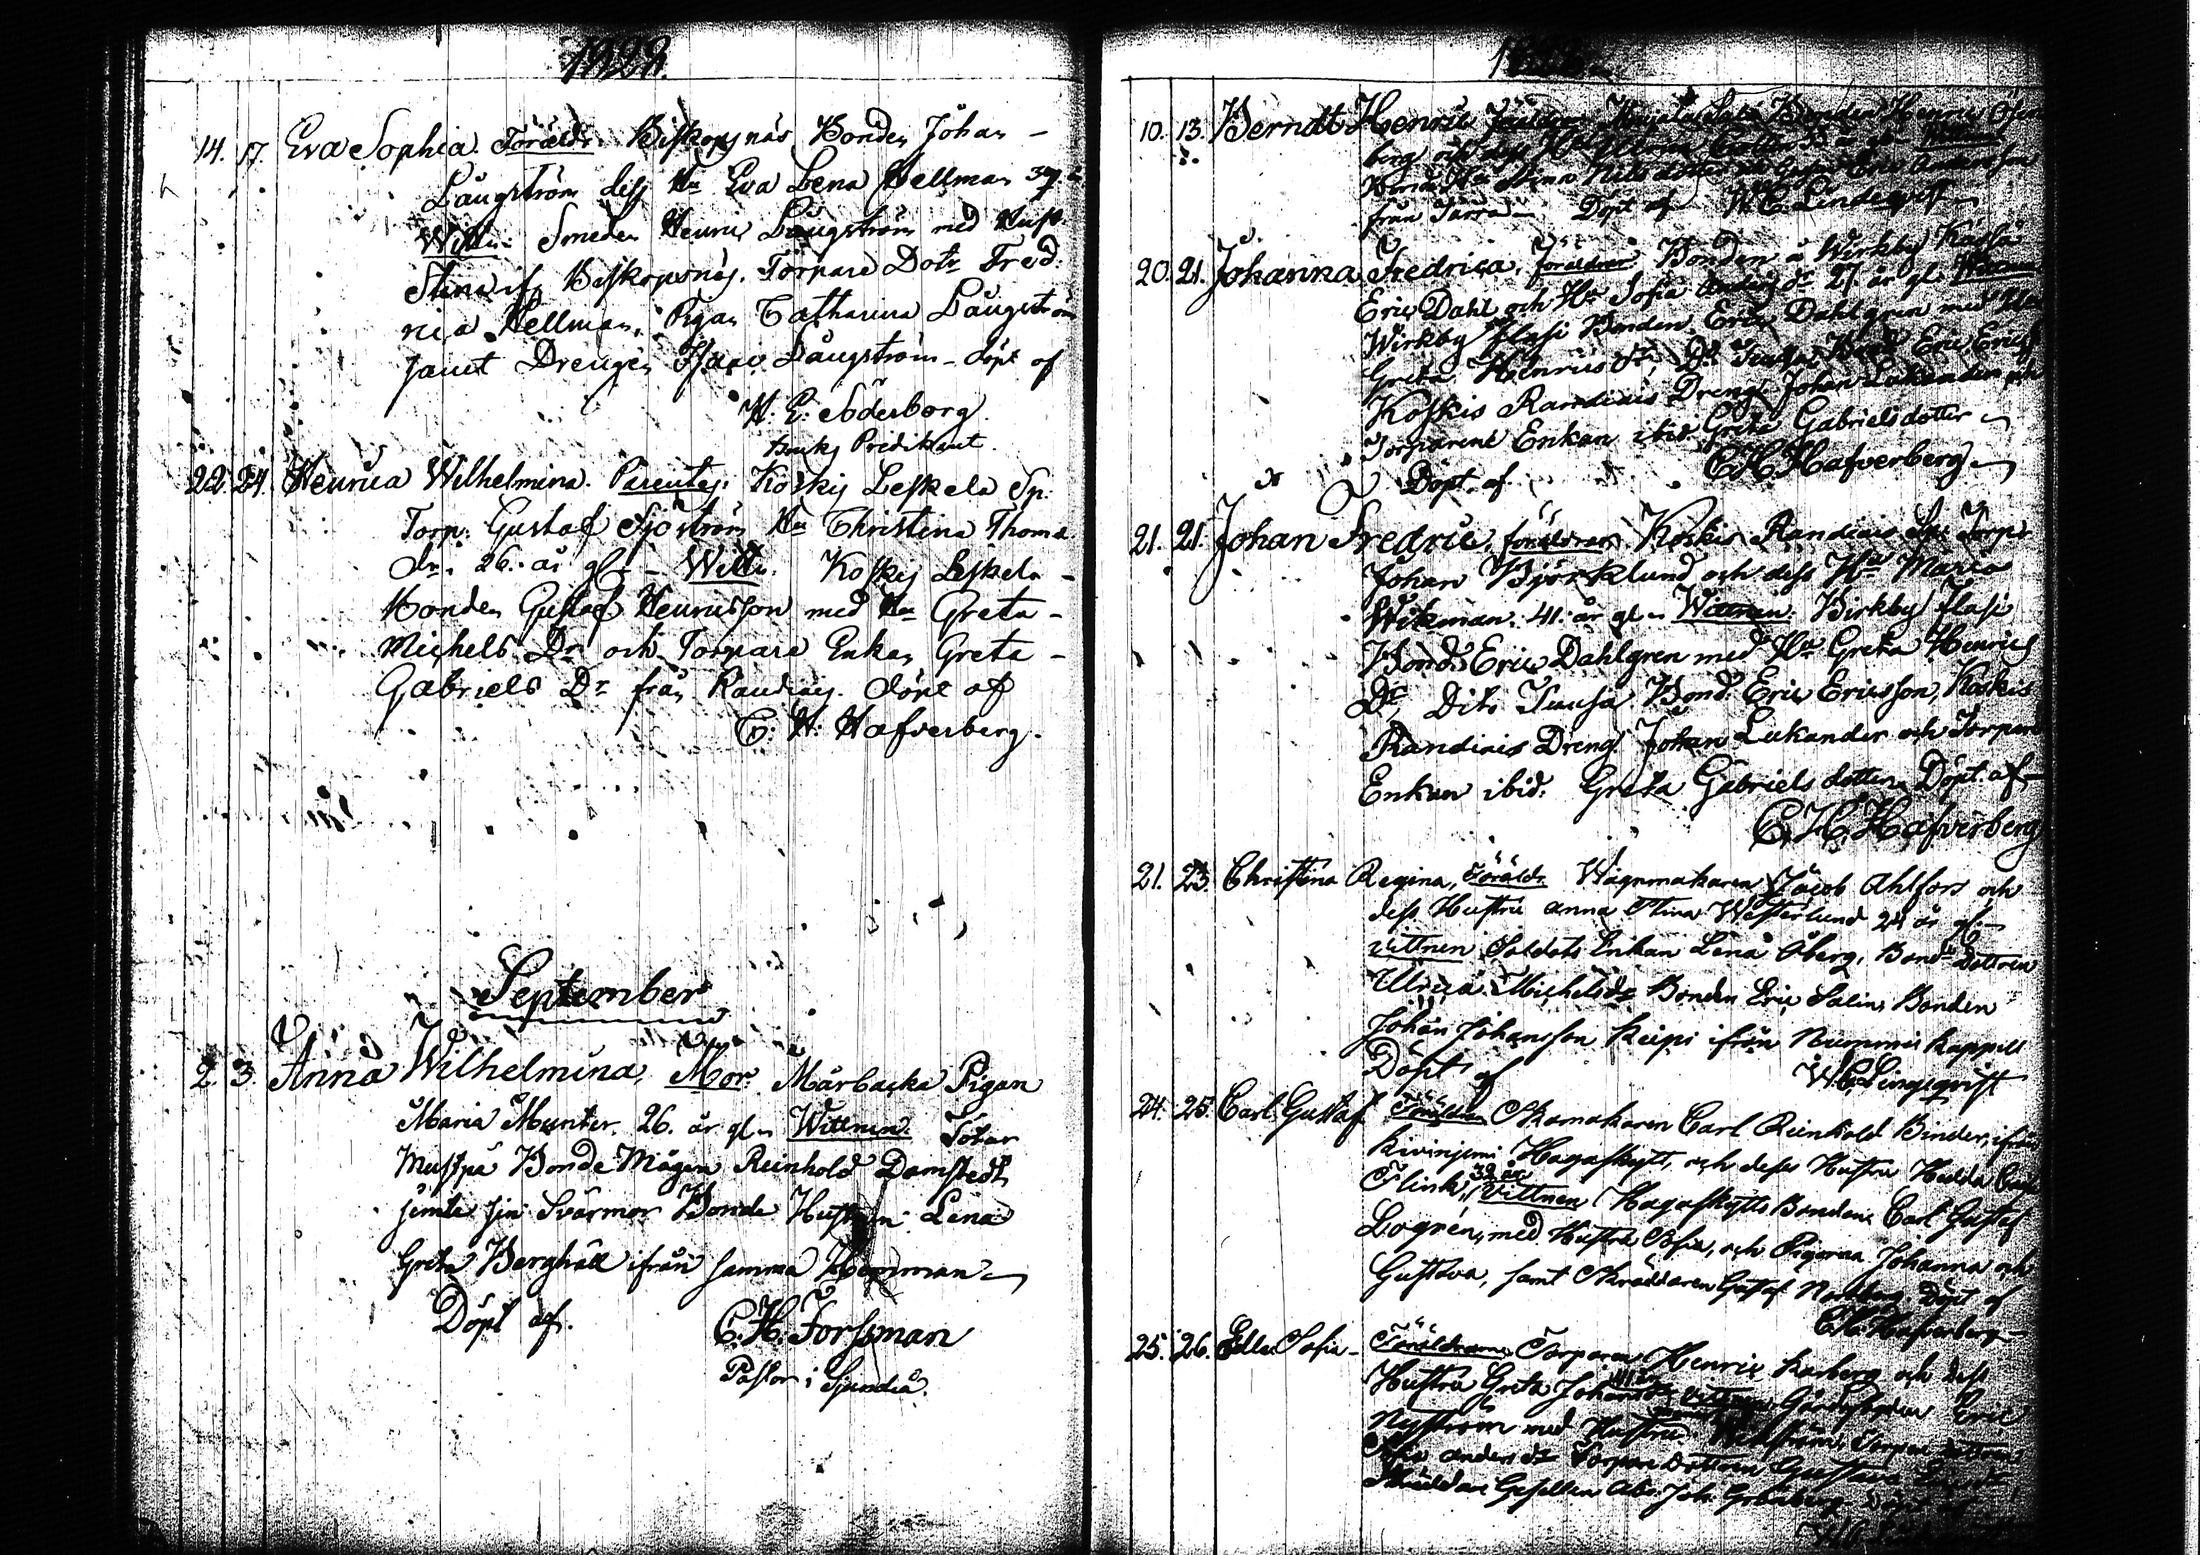 14. 17. Eva Sophia. Föräldr. Biskopsnäs Bonden Johan
Långström dess Hu Eva Lena Hellman 39 å
Wittn. Smeden Henric Långström med Hust.
Stina ifr Biskopsnäs. Torpare Dotr Fred
rica Hellman, Pigan Catharina Långström
samt Drengen Isaac Långström - döpt af
H. E. Söderborg.
Bruks Predikant
22. 24. Henrica Wilhelmina. Parentes. Koskis Leskela Sp.
Torp. Gustaf Sjöström Hu Christina Thoms
dr. 26. år gl - Wittn. Koskis Leskela -
Bonden Gustaf Henricsson med Hu Greta -
Michels Dr och Torpare Enkan Greta -
Gabriels Dr från Randiais. döpt af
C. H. Hafverberg.
September
2. 3. Anna Wilhelmina, Mor. Mårbacka Pigan
Maria Munter, 26. år gl. Wittnen. Tötar
Muspä Bonde Mågen Reinhold Damstedt
jemte sin Svärmor Bonde Hustrun Lena
Greta Berghäll ifrån samma Hemman
Döpt af. C. H. Forssman
Pastor i Sjundeå.
10. 13. Berndt Henric Föräldrar Bonden Henric
berg och dess Hu Ulrica
Hu Stina Nils dotter Eric Andersson
från Döpt af W. C. Lindeqvist
20. 21. Johanna Fredrica, föräldrar Bonden å Wirkby Kaslå
Eric Dahl och Hu Sofia Anders dr 27 år gl. Wittnen
Wirkby Flasi Bonden Eric Dahlgren med Hu
Greta Henrics dr, Do Tuusa Bond. Eric Ericss
Koskis Randiais Dreng. Johan Lukander och
Torpare Enkan ibid. Greta Gabrielsdotter
Döpt af C. H. Hafverberg
21. 21. Johan Fredric, föräldrar Koskis Randiais Sp. Torp.
Johan Björklund och dess Hu Maria
Wikman. 41. år gl. Wittnen. Wirkby Flasi
Bond. Eric Dahlgren med Hu Greta Henrics
Dr, Dito Tuusa Bond. Eric Ericsson, Koskis
Randiais Dreng. Johan Lukander och Torpare
Enkan ibid. Greta Gabriels dotter Döpt af
C. H. Hafverberg
21. 23. Christina Regina, Föräldr. Wagnmakaren Jacob Ahlfors och
dess Hustru Anna Stina Westerlund 24 år gl.
vittnen Soldats Enkan Lena Åberg, Bond. Dottren
Ulrica Michelsdr Bonden Eric Salin, Bonden
Johan Johansson Keipi ifrån Nummis kappell
Döpt af W. C. Lindeqvist
24. 25. Carl Gustaf Föräldrar Skomakaren Carl Reinhold Binder, ifrån
Kivinjemi Hagaskytt, och dess Hustru Hedda
Flink, 32 år Vittnen Hagaskytts Bonden Carl Gustaf
Logrén, med Hustru Sofia, och Pigorna Johanna och
Gustava, samt Skräddaren Gustaf Döpt af
C. H. Hafverberg
25. 26. Edla Sofia - Föräldrarne Torparen Henric Karberg och dess
Hustru Greta Johansdr vittnen Eric
Nyström med Hustru Torpare dottren
anders dr Torpare dottren Gustava
Gesällen Joh. Grönberg Döpt af